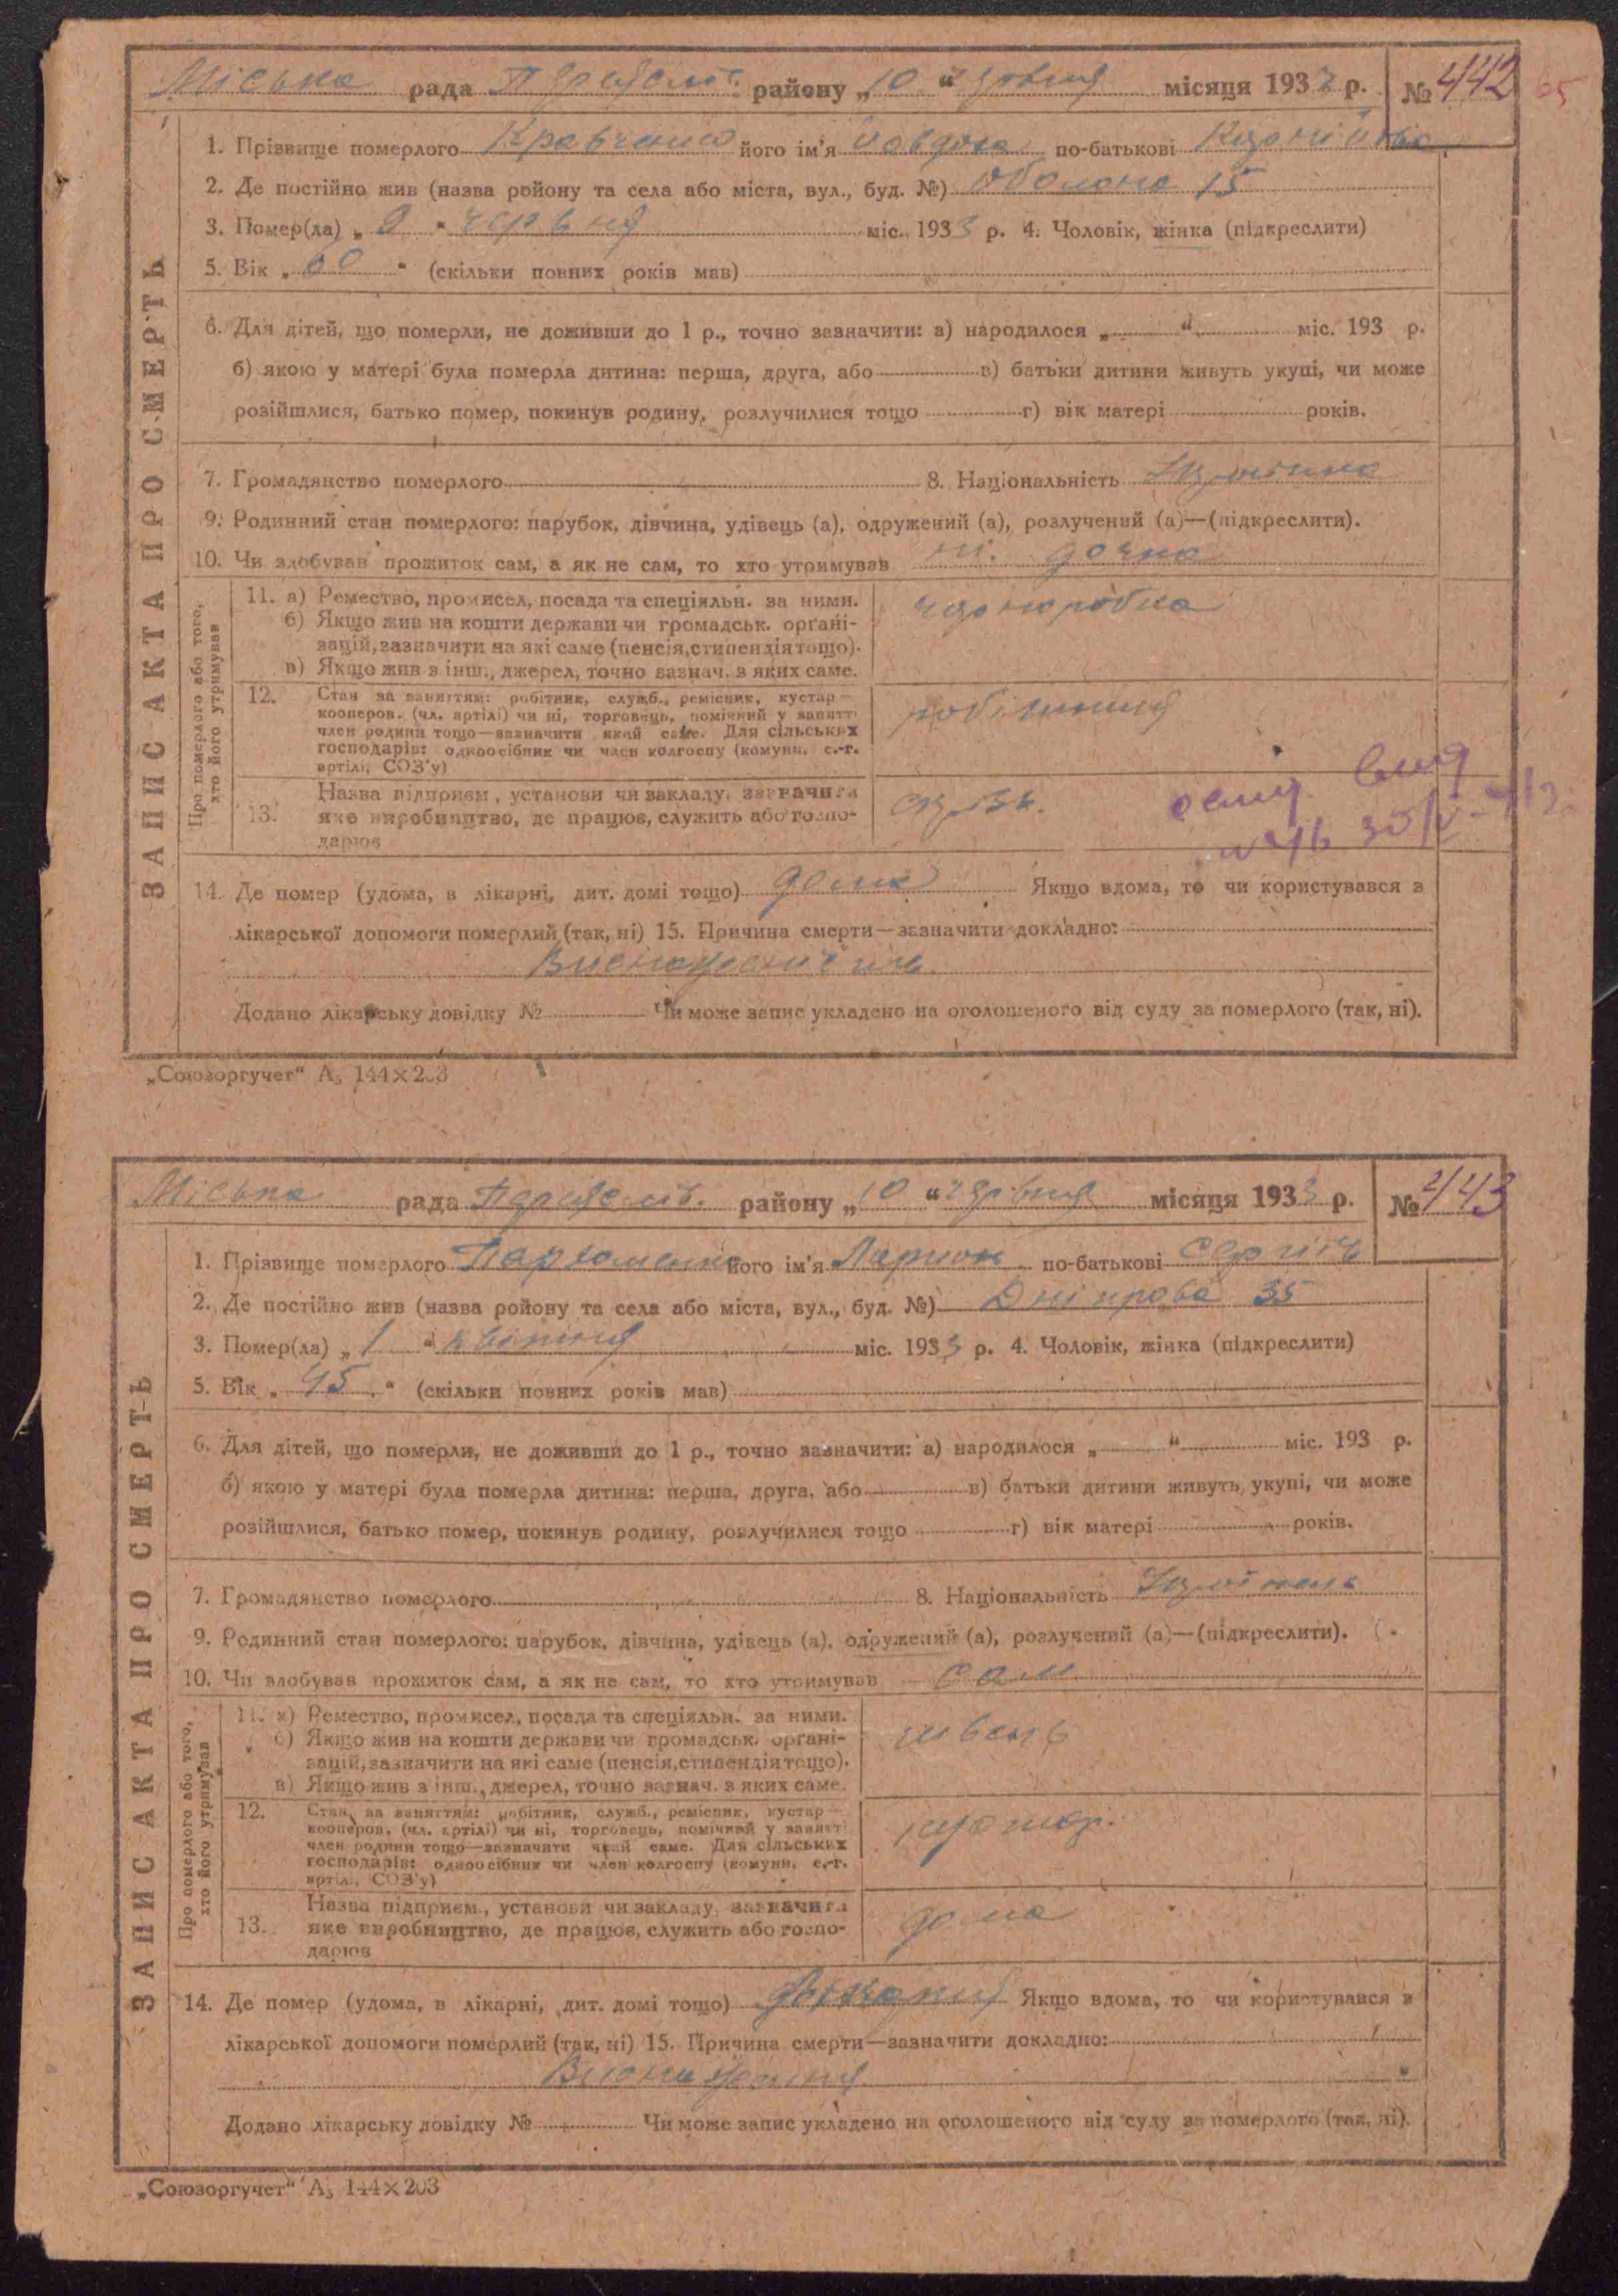 Міська рада района „10“ червня місяця 1933 р. № 442 65
1. Прізвище померлого Кравченко його ім'я Йовдоха по-батькові
2. Де постійно жив (назва ройону та села або міста, вул., буд. №) Оболоня 15
3. Помер(ла) „9“ червня міс. 1933 р. 4. Чоловік, жінка (підкреслити)
5. Вік „60“ (скільки повних років мав)
6. Для дітей, що померли, не доживши до 1 р., точно зазначити: а) народилося „ “ міс. 193 р.
б) якою у матері була померла дитина: перша, друга, або в) батьки дитини живуть укупі, чи може
розійшлися, батько помер, покинув родину, розлучилися тощо г) вік матері років.
7. Громадянство померлого 8. Національність Українка
9. Родинний стан померлого: парубок, дівчина, удівець (а), одружений (а), розлучений (а)—(підкреслити).
10. Чи здобував прожиток сам, а як не сам, то хто утримував ні. дочка
Про померлого або того, хто його утримував
11. а) Ремество, промисел, посада та спеціяльн. за ними. чорноробка
б) Якщо жив на кошти держави чи громадськ. організацій, зазначити на які саме (пенсія, стипендія тощо).
в) Якщо жив з інш., джерел, точно зазнач. з яких саме.
12. Стан за заняттям: робітник, служб., ремісник, кустар— робітниця
кооперов. (чл. артілі) чи ні, торговець, помічний у занятті
член родини тощо—зазначити який саме. Для сільських
господарів: одноосібник чи член колгоспу (комуни, с.-г.
артілі, СОЗ'у)
13. Назва підприєм., установи чи закладу, зазначити
яке виробництво, де працює, служить або госпо-
дарює
14. Де помер (удома, в лікарні, дит. домі тощо) дома Якщо вдома, то чи користувався з
лікарської допомоги померлий (так, ні) 15. Причина смерти—зазначити докладно:
Додано лікарську довідку № Чи може запис укладено на оголошеного від суду за померлого (так, ні).
ЗАПИС АКТА ПРО СМЕРТЬ
„Союзоргучет“ А₅ 144×203
Міська рада района „10“ червня місяця 1933 р. № 443
1. Прізвище померлого Пархоменко його ім'я Ларион по-батькові Сергіїч
2. Де постійно жив (назва ройону та села або міста, вул., буд. №) Дніпрова 35
3. Помер(ла) „1“ квітня міс. 1933 р. 4. Чоловік, жінка (підкреслити)
5. Вік „45“ (скільки повних років мав)
6. Для дітей, що померли, не доживши до 1 р., точно зазначити: а) народилося „ “ міс. 193 р.
б) якою у матері була померла дитина: перша, друга, або в) батьки дитини живуть укупі, чи може
розійшлися, батько помер, покинув родину, розлучилися тощо г) вік матері років.
7. Громадянство померлого 8. Національність Українець
9. Родинний стан померлого: парубок, дівчина, удівець (а), одружений (а), розлучений (а)—(підкреслити).
10. Чи здобував прожиток сам, а як не сам, то хто утримував сам
Про померлого або того, хто його утримував
11. а) Ремество, промисел, посада та спеціяльн. за ними. швець
б) Якщо жив на кошти держави чи громадськ. організацій, зазначити на які саме (пенсія, стипендія тощо).
в) Якщо жив з інш., джерел, точно зазнач. з яких саме.
12. Стан за заняттям: робітник, служб., ремісник, кустар— кустар.
кооперов. (чл. артілі) чи ні, торговець, помічний у занятті
член родини тощо—зазначити який саме. Для сільських
господарів: одноосібник чи член колгоспу (комуни, с.-г.
артілі, СОЗ'у)
13. Назва підприєм., установи чи закладу, зазначити дома
яке виробництво, де працює, служить або госпо-
дарює
14. Де помер (удома, в лікарні, дит. домі тощо) Якщо вдома, то чи користувався з
лікарської допомоги померлий (так, ні) 15. Причина смерти—зазначити докладно:
Виснаження
Додано лікарську довідку № Чи може запис укладено на оголошеного від суду за померлого (так, ні).
ЗАПИС АКТА ПРО СМЕРТЬ
„Союзоргучет“ А₅ 144×203